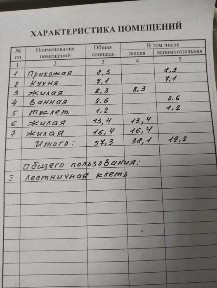 ХАРАКТЕРИСТИКА ПОМЕЩЕНИЙ
№ пп Наименование помещений Общая площадь В том числе
жилая вспомогательная
1 2 3 4 5
1 Прихожая 2,3 2,3
2 Кухня 7,1 7,1
3 Жилая 8,3 8,3
4 Ванная 2.6 2.6
5 Туалет 1.2 1.2
6 Жилая 13,4 13,4
7 Жилая 16,4 16,4
Итого: 38,1
Общего пользования:
Лестничная клеть